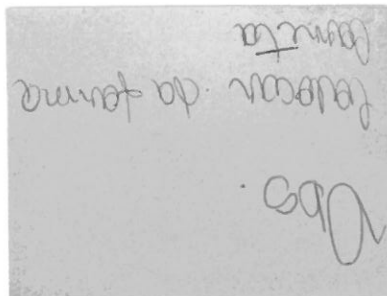 Obs.
colocar da forma
correta